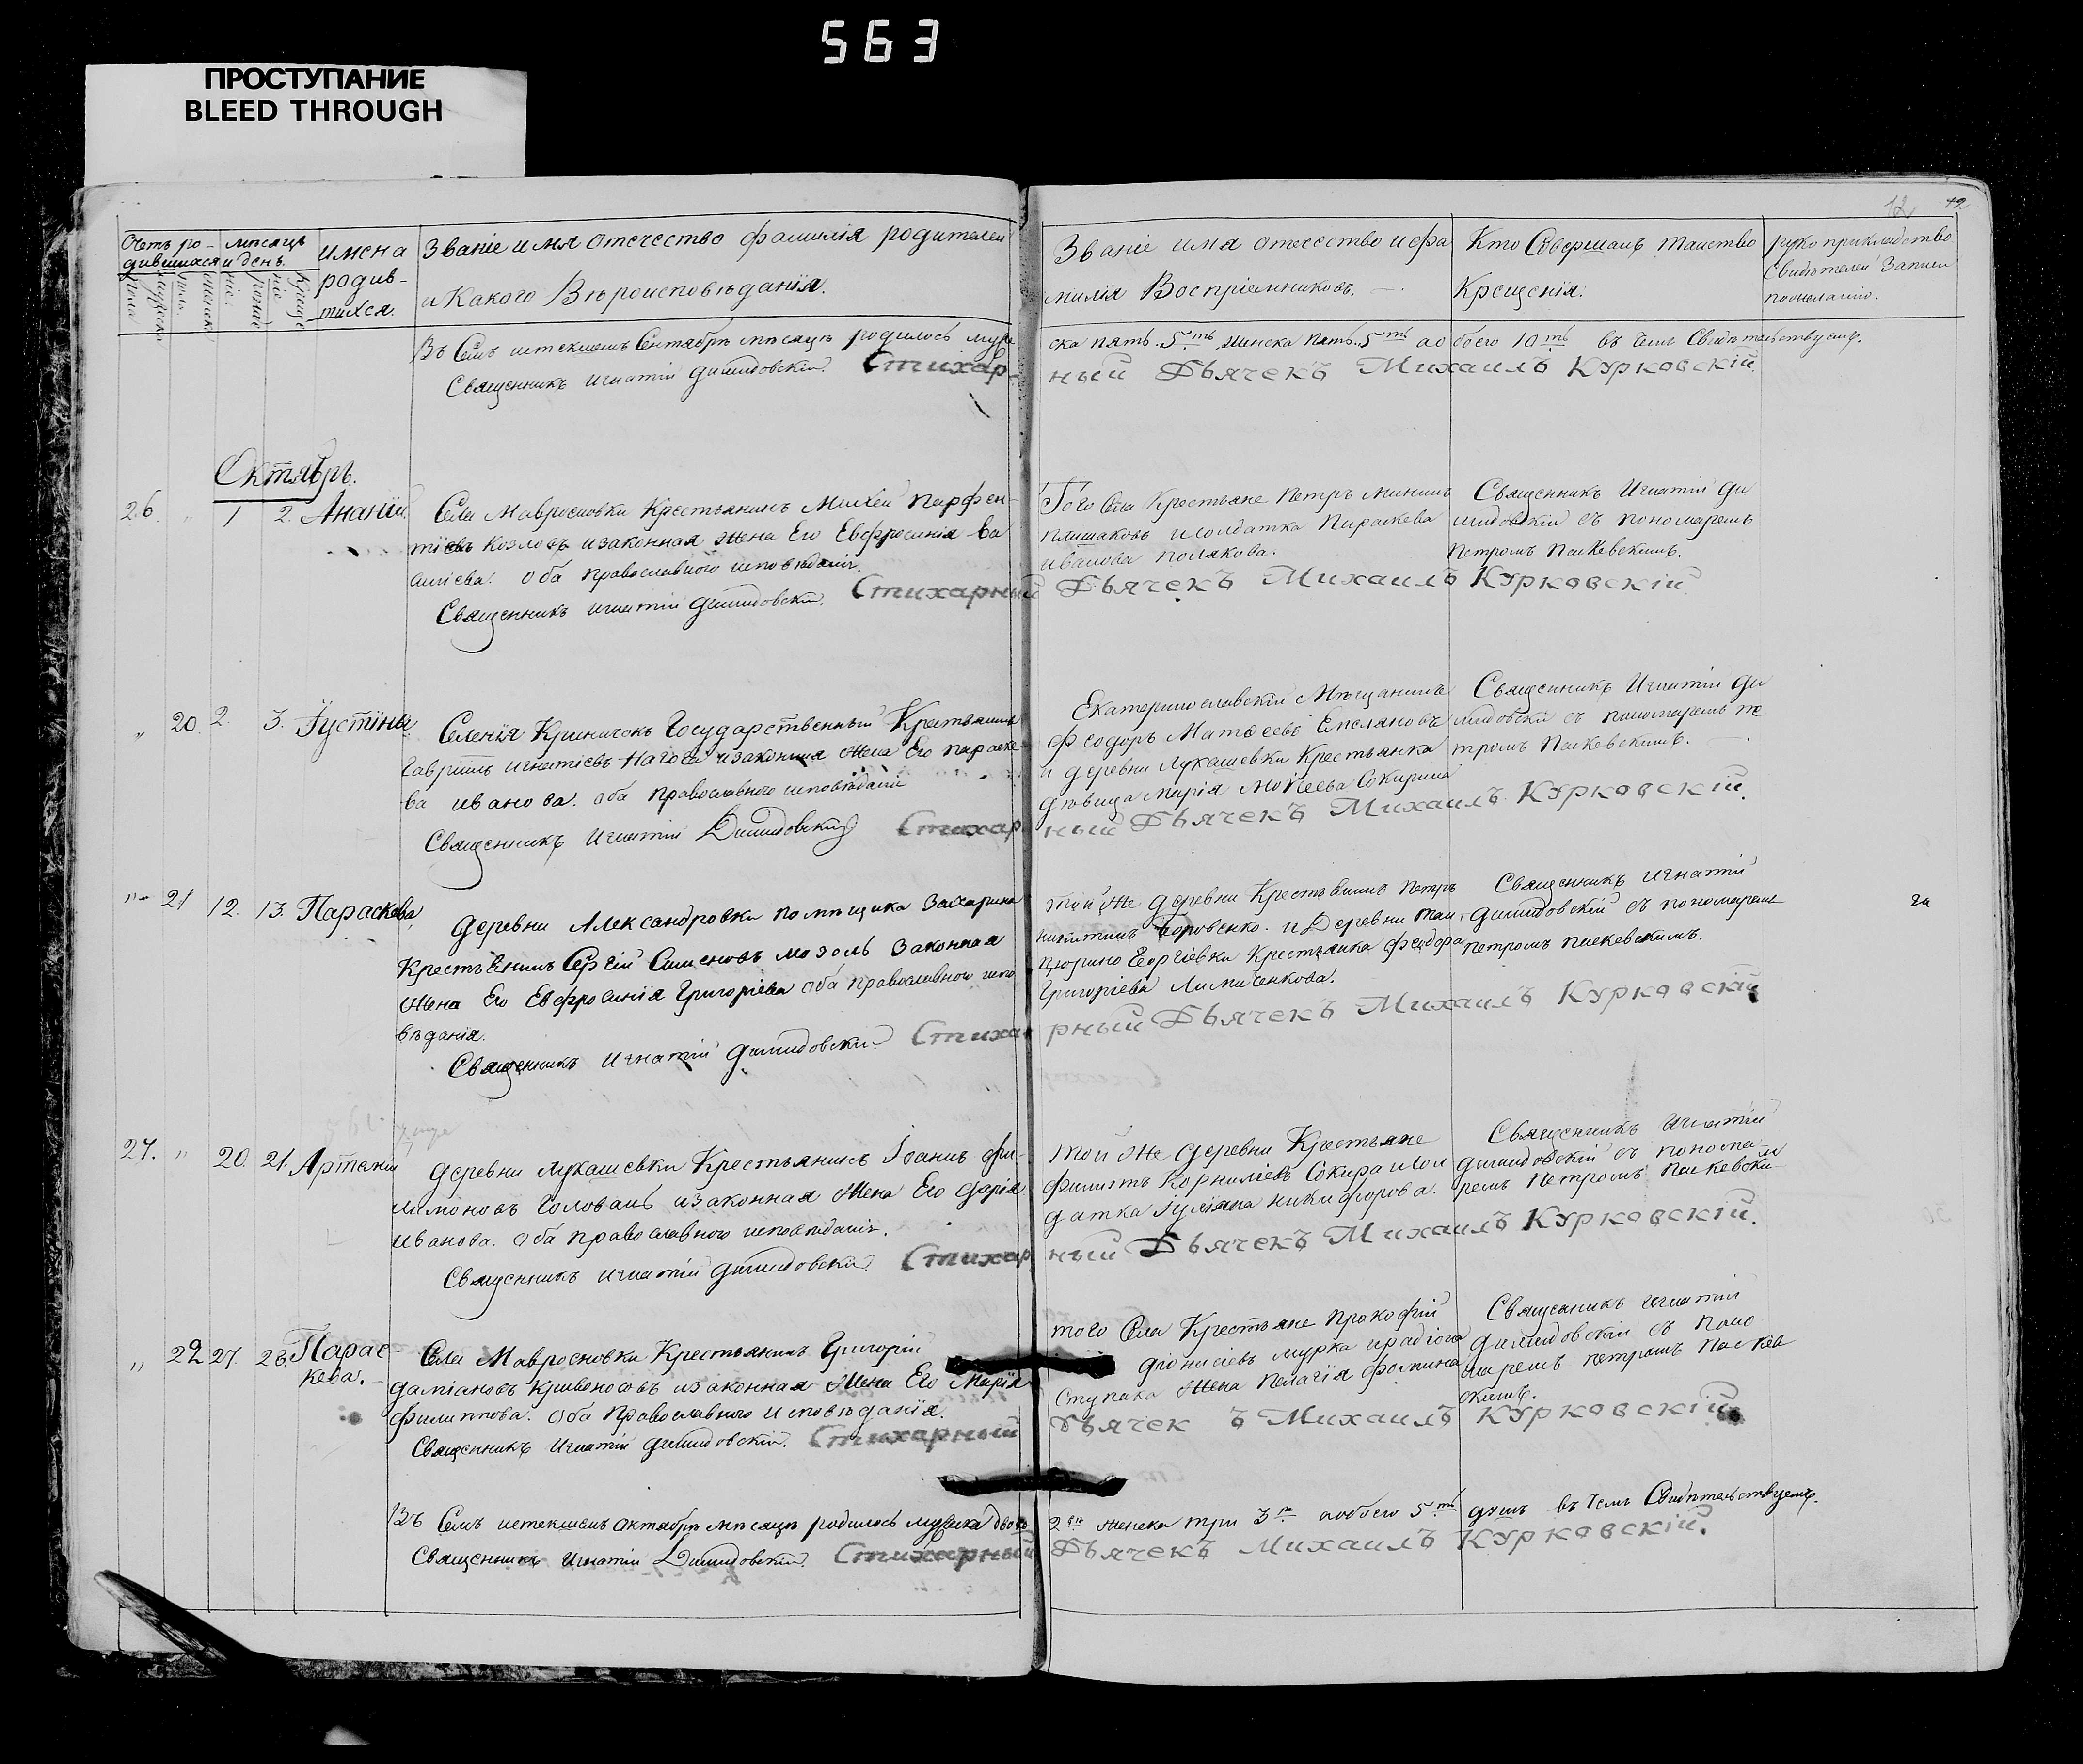 563
ПРОСТУПАНИЕ
BLEED THROUGH
12 12
Счетъ ро-
дившихся
мѣсяцъ
и день.
имена
родив-
шихся.
Званіе имя отечество фамилія родителей
и Какого Вѣроисповѣданія.
Званіе имя отечество и фа
милія Воспріемниковъ.
Кто Совершалъ таинство
Крещенія.
рукоприкладство
Свидѣтелей Записи
по желанію.
Въ Семъ истекшемъ Сентябрѣ мѣсяцѣ родилось муже
ска пять 5ть женска пять 5ть а обоего 10ть въ чемъ Свидѣтельствуемъ.
Священникъ Игнатій Демидовскій. Стихар-
ный Дьячекъ Михаилъ Курковскій
Октябрь.
26. " 1 2. Ананій
Села Мавросновки Крестьянинъ Михей Парфен-
тіевъ Козловъ и законная жена Его Евфросинія Ва
силіева. Оба православнаго исповѣданія.
Священникъ Игнатій Демидовскій. Стихарный
Того Села Крестьяне Петръ Мининъ
и солдатка Параскева
Иванова Полякова.
Священникъ Игнатій Де
мидовскій съ пономаремъ
Петромъ Паскевскимъ.
Дьячекъ Михаилъ Курковскій
" 20 2. 3. Іустина
Селенія Криничекъ Государственный Крестьянинъ
Гавріилъ Игнатіевъ Нагога и законная жена Его Параске
ва Иванова. Оба православнаго исповѣданія
Священникъ Игнатій Демидовскій Стихар
Екатеринославскій Мѣщанинъ
Феодоръ Матѳеевъ
и деревни Лукашевки Крестьянка
дѣвица Марія Сокирина
Священникъ Игнатій Де
мидовскій съ пономаремъ Пе
тромъ Паскевскимъ.
ный Дьячекъ Михаилъ Курковскій.
" 21 12. 13. Параскева
деревни Александровки помѣщика Захарина
Крестьянинъ Сергій Симеоновъ Мозоль Законная
жена Его Евфросинія Григоріева Оба православнаго испо
вѣданія.
Священникъ Игнатій Демидовскій. Стиха
той же деревни Крестьянинъ Петръ
Никитинъ Боровенко. и Деревни
Георгіевки Крестьянка Феодора
Григоріева
Священникъ Игнатій
Демидовскій съ пономаремъ
Петромъ Паскевскимъ.
рный Дьячекъ Михаилъ Курковскій
27. " 20. 21. Артемій
деревни Лукашевки Крестьянинъ Іоаннъ Фи-
лимоновъ Головань и законная жена Его Дарія
Иванова. Оба православнаго исповѣданія.
Священникъ Игнатій Демидовскій. Стихар
той же деревни Крестьяне
Филиппъ Корниліевъ Сокира и сол
датка Іуліана Никифорова.
Священникъ Игнатій
Демидовскій съ понома-
ремъ Петромъ Паскевски-
ный Дьячекъ Михаилъ Курковскій.
" 22 27. 28. Парас-
кева.
Села Мавросновки Крестьянинъ Григорій
Даміановъ Кривоносовъ и законная жена Его Марія
Филиппова. Оба Православнаго Исповѣданія.
Священникъ Игнатій Демидовскій. Стихарный
того Села Крестьяне Прокофій
Діонисіевъ Мурка
Ступака жена Пелагія Фомина
Священникъ Игнатій
Демидовскій съ поно
маремъ Петромъ Паскев
скимъ.
Дьячекъ Михаилъ Курковскій
Въ Семъ истекшемъ Октябрѣ мѣсяцѣ родилось мужска двое
2 женска три 3 а обоего 5ть душъ въ чемъ Свидѣтельствуемъ.
Священникъ Игнатій Демидовскій. Стихарный
Дьячекъ Михаилъ Курковскій.